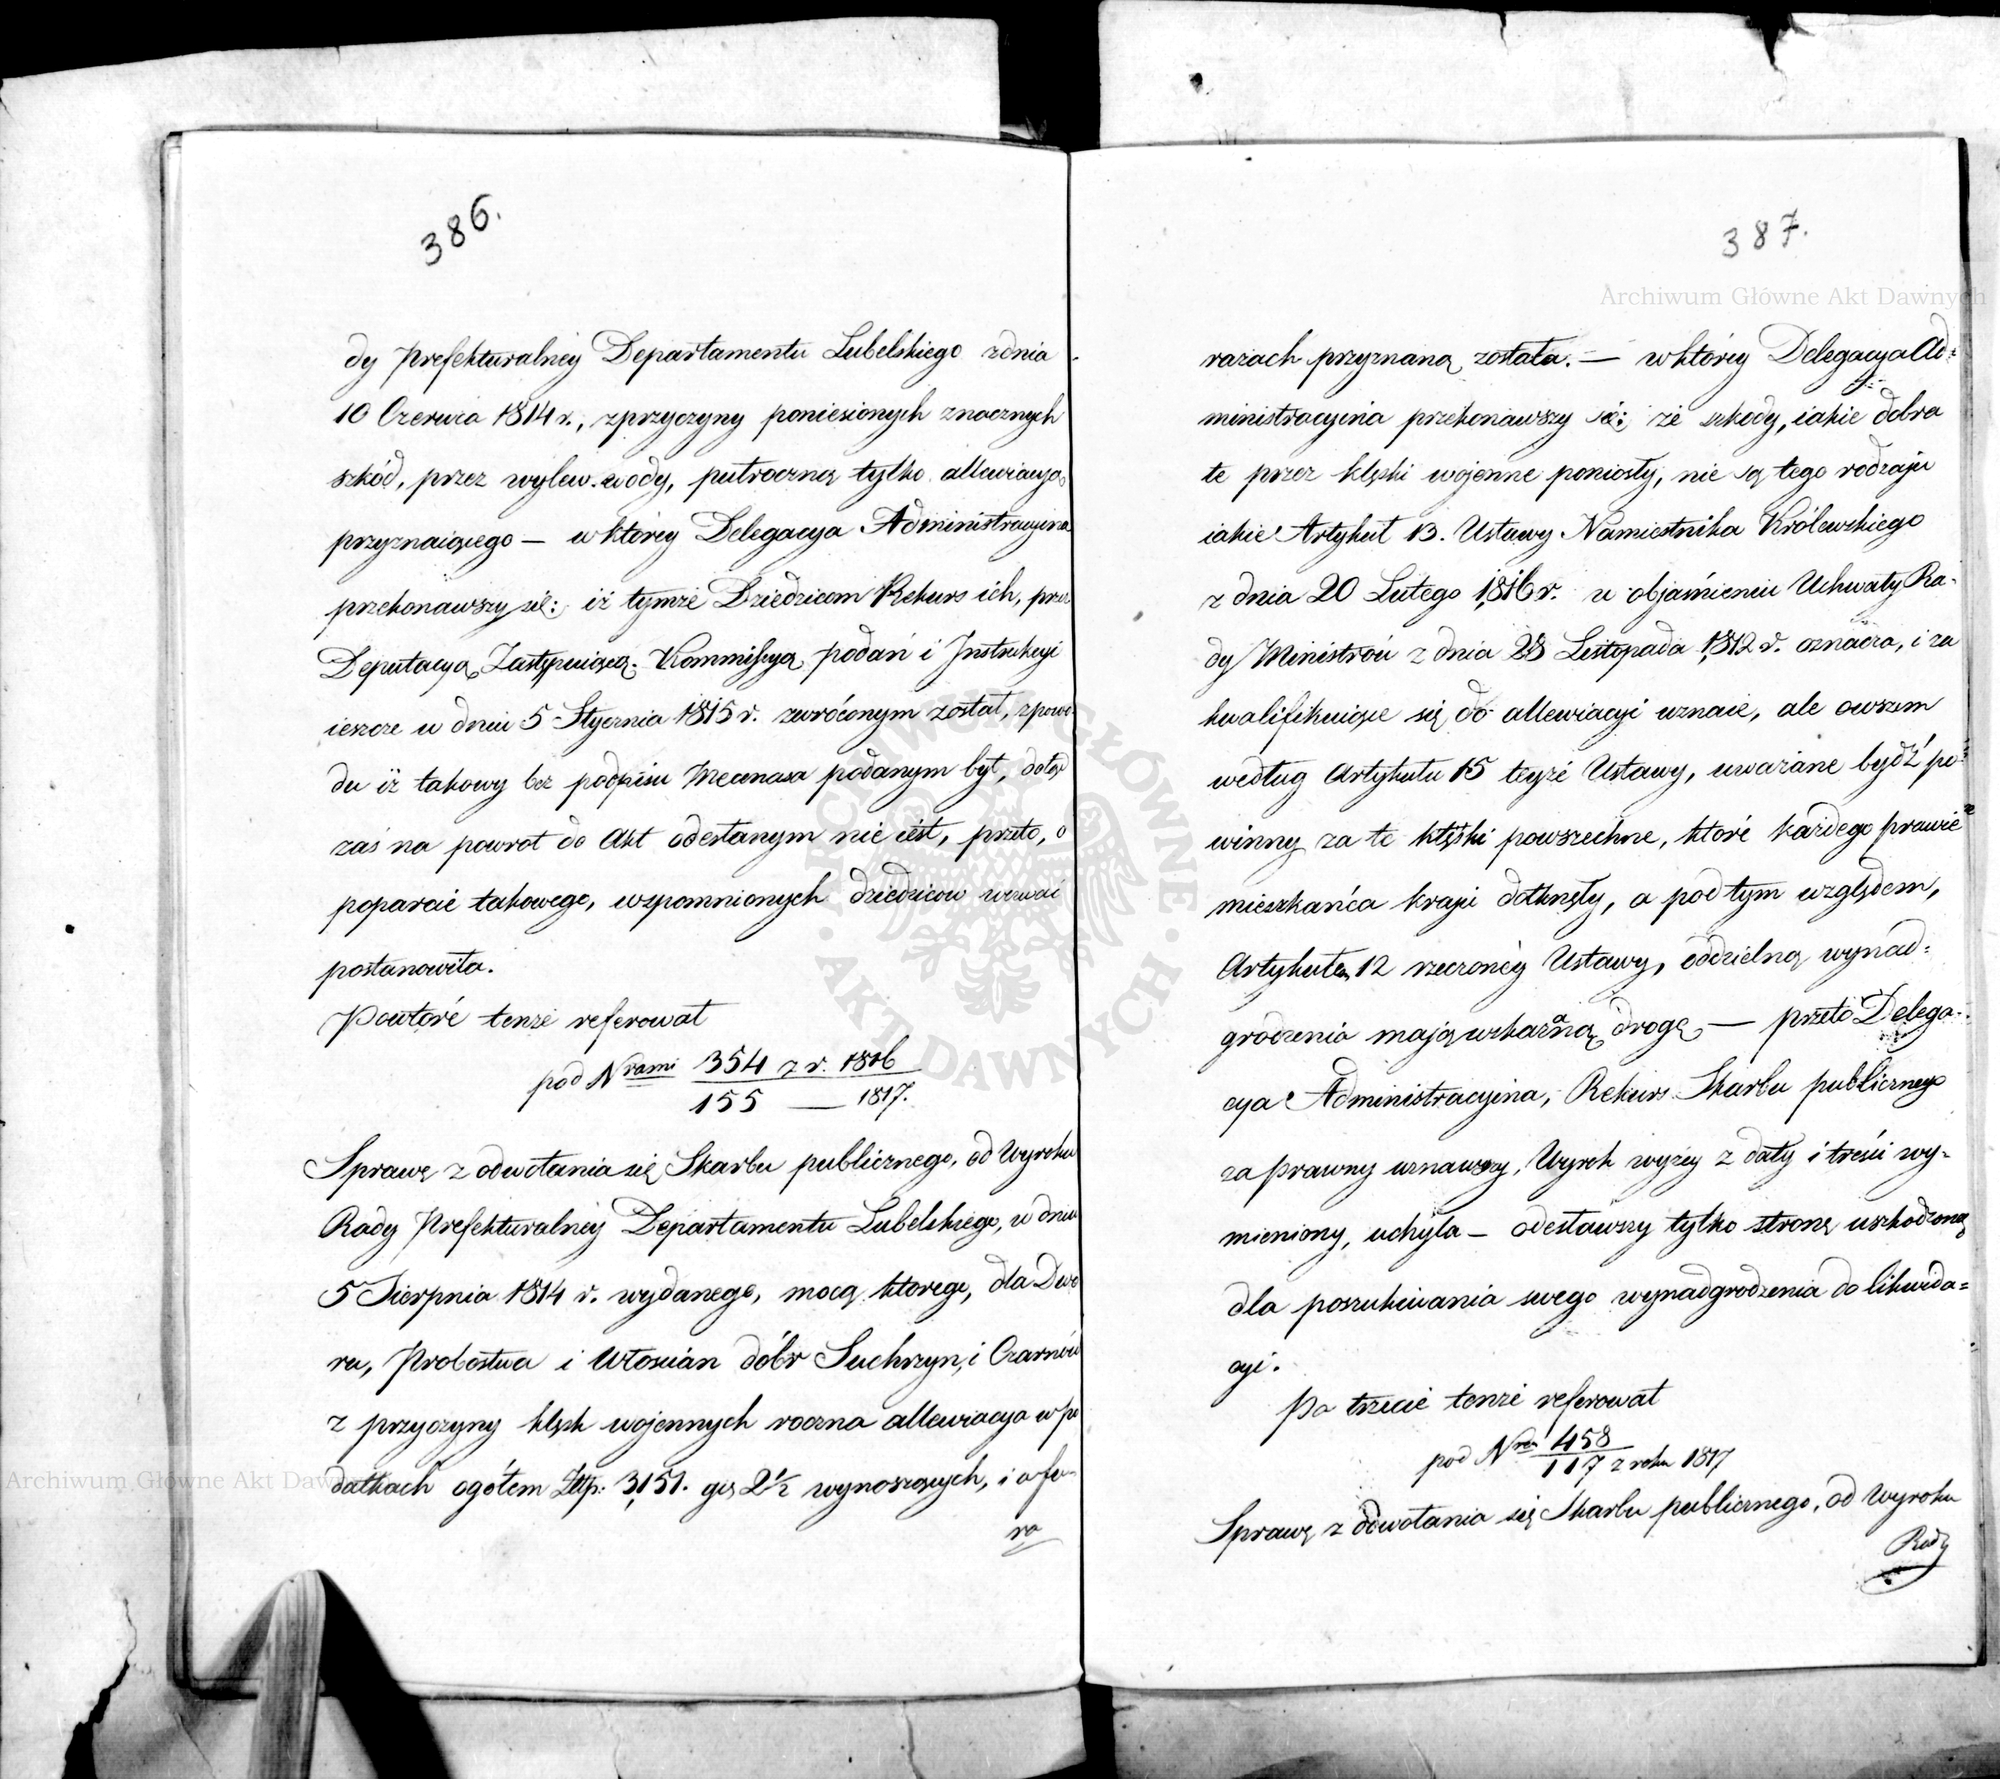 386.
dy Prefekturalney Departamentu Lubelskiego zdnia
10 Czerwca 1814 r., zprzyczyny poniesionych znacznych
szkód, przez wylew wody, putroczną tylko allewiacyą
przyznaiącego — wktórey Delegacya Administracyina
przekonawszy się: iż tymże Dziedzicom Rekurs ich, przez
Deputacyą Zastępuiącą Kommissyą podań i Instrukcyi
ieszcze w dniu 5 Stycznia 1815 r. zwróconym został, zpowo-
du iż takowy bez podpisu Mecenasa podanym był, dotąd
zaś na powrot do Akt odesłanym nie iest, przeto, o
poparcie takowego, wspomnionych dziedziców wezwać
postanowiła.
Powtóre tenże referował
pod Nrami 354 z r. 1816
155 — 1817.
Sprawę z odwołania się Skarbu publicznego, od Wyroku
Rady Prefekturalney Departamentu Lubelskiego, w dniu
5 Sierpnia 1814 r. wydanego, mocą ktorego, dla Dwo
ru, Probostwa i Włościan dóbr Suchrzyn, i Czarnów
z przyczyny klęsk wojennych roczna allewiacya w po
datkach ogółem Złtp: 3,151. gr 2 1/2 wynoszących, i o fu-
ra
387.
Archiwum Główne Akt Dawnych
rażach przyznaną została. — wktórey Delegacya Ad=
ministracyina przekonawszy się: że szkody, iakie dobra
te przez klęski wojenne poniosły, nie są tego rodzaju
iakie Artykuł 13. Ustawy Namiestnika Królewskiego
z dnia 20 Lutego 1,816 r. w objaśnieniu Uchwały Ra-
dy Ministrów z dnia 28 Listopada 1,812 r. oznacza, i za
kwalifikuiące się do allewiacyi uznaie, ale owszem
według Artykułu 15 teyże Ustawy, uważane bydź po=
winny za te klęski powszechne, które każdego prawie
mieszkańca kraju dotknęły, a pod tym względem,
Artykułem 12 rzeczoney Ustawy, oddzielną wynad=
grodzenia mają wskazaną drogę — przeto Delega-
cya Administracyina, Rekurs Skarbu publicznego
za prawny uznawszy, Wyrok wyżey z daty i treści wy-
mieniony, uchyla — odesławszy tylko stronę uszkodzoną
dla poszukiwania swego wynadgrodzenia do likwida=
cyi.
Po trzecie tenże referował
pod Nrem 458
117 z roku 1817
Sprawę z odwołania się Skarbu publicznego, od Wyroku
Rady
Archiwum Główne Akt Dawnych
ARCHIWUM GŁÓWNE · AKT DAWNYCH ·